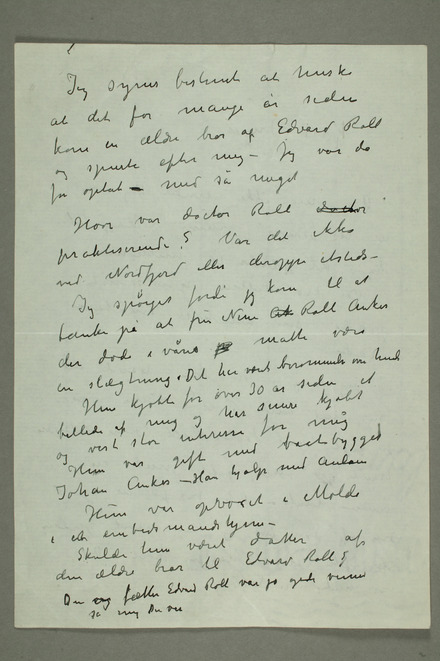 Jeg synes bestemt at huske
at det for mange år siden
kom en ældre bror af Edvard Roll
og spurte efter mig – Jeg var da
for optat – med så meget
Hvor var doctor Roll doctor
praktiserende? Var det ikke
ved Nordfjord eller deroppe etsteds –
Jeg spørger fordi jeg kom til at
tænke på at fru Nini Roll Anker
der døde i våres måtte være
en slægtning.
Hun kjøbte for over 30 år siden et
billede af mig og har senere kjøbt
og vist stor interesse for mig
Hun var gift med baatbygger
Johan Anker – Han hjalp med
Hun var opvoxet i Molde
i et embedsmandshjem –
Skulde hun været datter af
den ældre bror til Edvard Roll?
Du og fætter Edvard Roll var jo gode venner
så